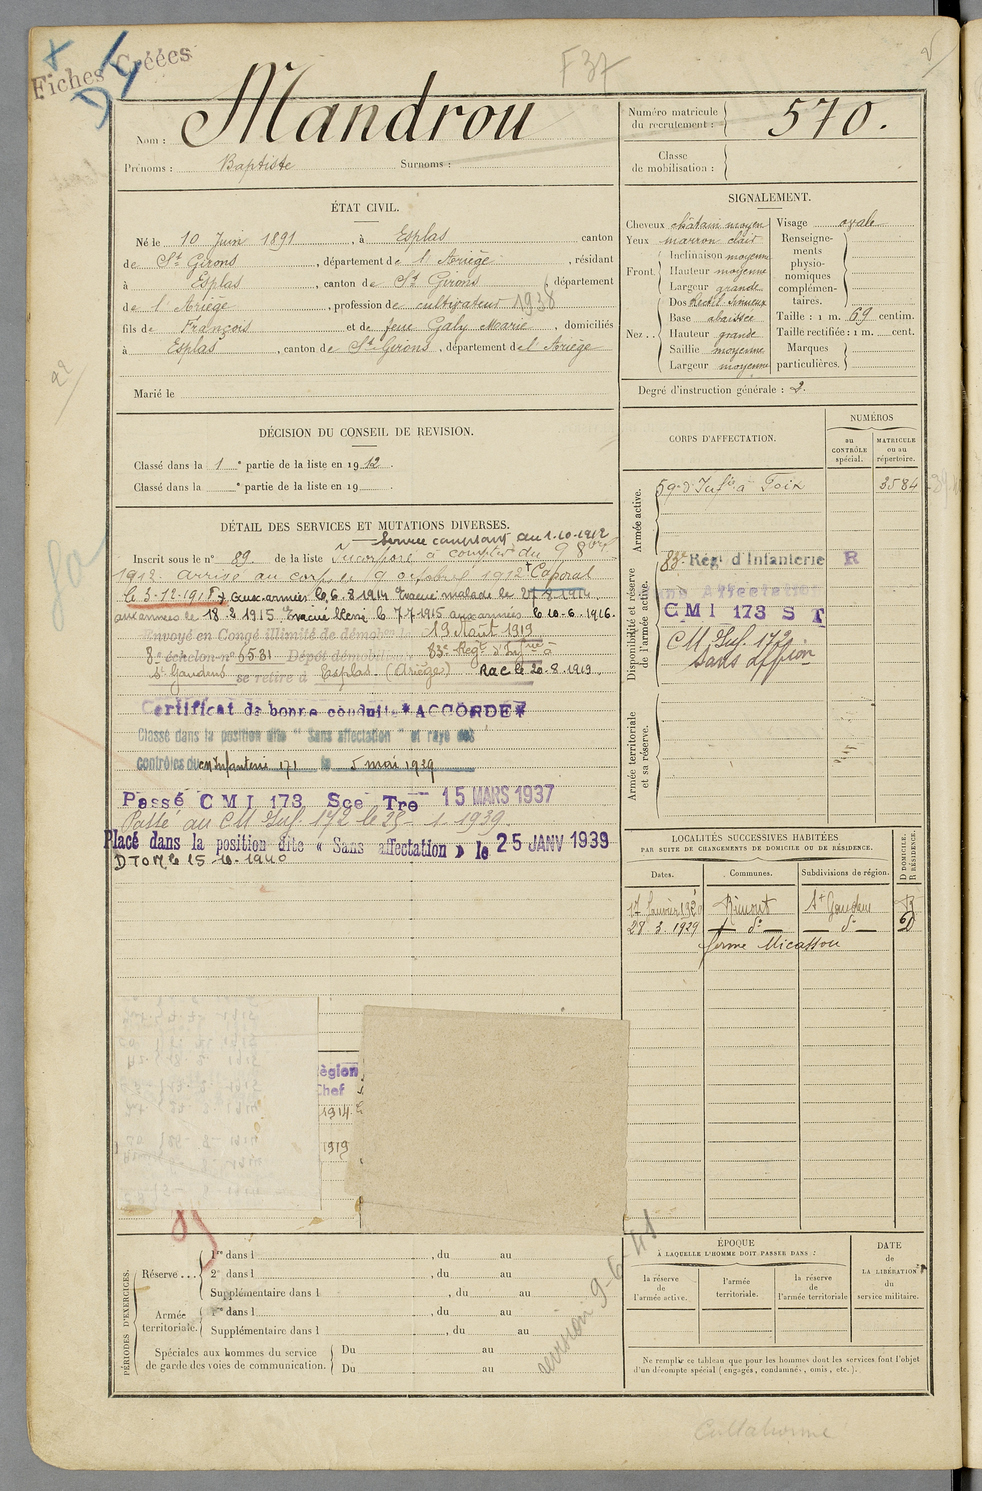 Fiches Créées
F 37
Nom : Mandrou
Prénoms : Baptiste Surnoms :
Numéro matricule du recrutement : 570.
Classe de mobilisation :
ÉTAT CIVIL.
Né le 10 Juin 1891, à Esplas canton
de St Girons, département de l'Ariège, résidant
à Esplas, canton de St Girons, département
de l'Ariège, profession de cultivateur 1938
fils de François et de feue Galy Marie, domiciliés
à Esplas, canton de St Girons, département de l'Ariège
Marié le
SIGNALEMENT.
Cheveux châtain moyen
Yeux marron clair
Front. Inclinaison moyenne
Hauteur moyenne
Largeur grande
Nez.. Dos Rectil. Sinueux
Base abaissée
Hauteur grande
Saillie moyenne
Largeur moyenne
Visage ovale
Renseignements physionomiques complémentaires.
Taille : 1 m. 69 centim.
Taille rectifiée : 1 m. cent.
Marques particulières.
Degré d'instruction générale : 2.
DÉCISION DU CONSEIL DE REVISION.
Classé dans la 1 e partie de la liste en 1912.
Classé dans la e partie de la liste en 19
DÉTAIL DES SERVICES ET MUTATIONS DIVERSES.
Service comptant du 1.10.1912
Inscrit sous le n° 89. de la liste Incorporé à compter du 9 8bre
1912. arrivé au corps le 9 octobre 1912 + Caporal
le 3-12-1915 + aux armées le 6.8.1914 Evacué malade le 27.8.1914
aux armées le 18.2.1915 Evacué blessé le 7.7.1915 aux armées le 10.6.1916.
Envoyé en Congé illimité de démobilisation le 19 Août 1919
8e échelon n° 5531 Dépôt démobilisateur 83e Régt d'Infrie à
St Gaudens se retire à Esplas. (Ariège) Rac le 20.8.1919.
Certificat de bonne conduite *ACCORDÉ*
Classé dans la position dite "Sans affectation" et rayé des
contrôles du CM Infanterie 171 le 5 mai 1939
Passé CMI 173 Sce Tre 15 MARS 1937
Passé au CM Inf. 172 le 25-1-1939.
Placé dans la position dite « Sans affectation » le 25 JANV 1939
DTOM le 15-10-1940
CORPS D'AFFECTATION.
NUMÉROS
au CONTRÔLE spécial.
MATRICULE ou au répertoire.
Armée active.
59e d'Infie à Foix 3584
Disponibilité et réserve de l'armée active.
83e Régt d'Infanterie R
Affectation
CMI 173 ST
CM Inf. 172
sans affion
Armée territoriale et sa réserve.
LOCALITÉS SUCCESSIVES HABITÉES
PAR SUITE DE CHANGEMENTS DE DOMICILE OU DE RÉSIDENCE.
Dates. Communes. Subdivisions de région. D DOMICILE. R RÉSIDENCE.
17 Janvier 1920 Rimont St Gaudens R
28 3. 1929 — do — — do — D
ferme Micassou
Région
Chef
1914.
1919
PÉRIODES D'EXERCICES.
Réserve... 1re dans l , du au
2e dans l , du au
Supplémentaire dans l , du au
Armée territoriale. 1re dans l , du au
Supplémentaire dans l , du au
Spéciales aux hommes du service de garde des voies de communication. Du au
Du au
revision 9-6-41
ÉPOQUE
À LAQUELLE L'HOMME DOIT PASSER DANS :
la réserve de l'armée active.
l'armée territoriale.
la réserve de l'armée territoriale
DATE de LA LIBÉRATION du service militaire.
Ne remplir ce tableau que pour les hommes dont les services font l'objet
d'un décompte spécial (engagés, condamnés, omis, etc.).